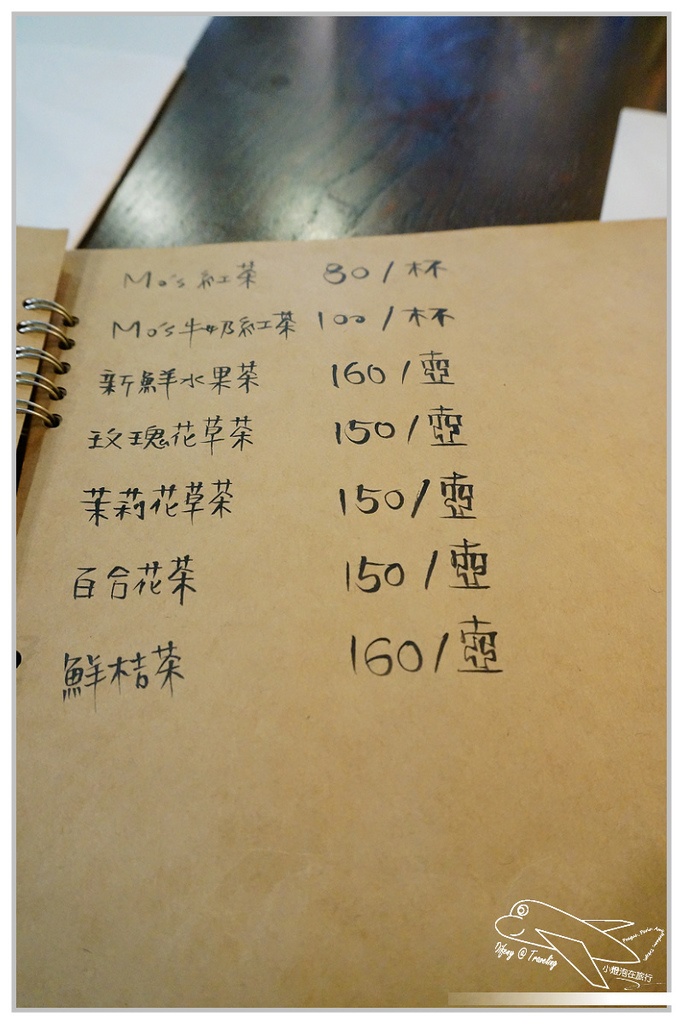 Mo's 紅茶 80 / 杯
Mo's 牛奶紅茶 100 / 杯
新鮮水果茶 160 / 壺
玫瑰花草茶 150 / 壺
茉莉花草茶 150 / 壺
百合花茶 150 / 壺
鮮桔茶 160 / 壺
@ Traveling
小燈泡在旅行